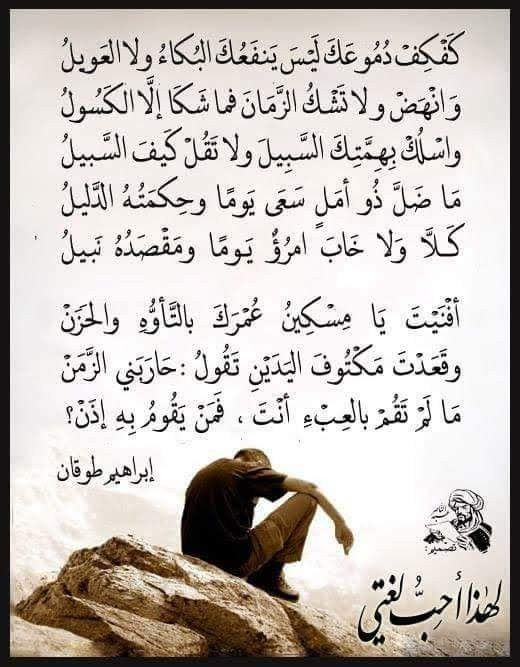 كَفْكِفْ دُمُوعَكَ لَيْسَ يَنفَعُكَ البُكَاءُ ولا العَوِيلُ
وَانْهَضْ ولا تَشْكُ الزَّمَانَ فما شَكَا إِلَّا الكَسُولُ
واسْلُكْ بِهِمَّتِكَ السَّبِيلَ ولا تَقُلْ كَيفَ السَّبيلُ
مَا ضَلَّ ذُو أَمَلٍ سَعَى يَومًا وحِكمَتُهُ الدَّليلُ
كَلَّا وَلا خَابَ امرُؤٌ يَومًا ومَقْصَدُهُ نَبيلُ
أَفْنَيْتَ يَا مِسْكِينُ عُمْرَكَ بالتَّأَوُّهِ والحَزَنْ
وقَعَدْتَ مَكْتُوفَ اليَدَيْنِ تَقُولُ : حَارَبَني الزَّمَنْ
مَا لَمْ تَقُمْ بالعِبْءِ أَنْتَ ، فَمَنْ يَقُومُ بِهِ إِذَنْ؟
إبراهيم طوقان
تصميم:
لهٰذا أحبُّ لغتي